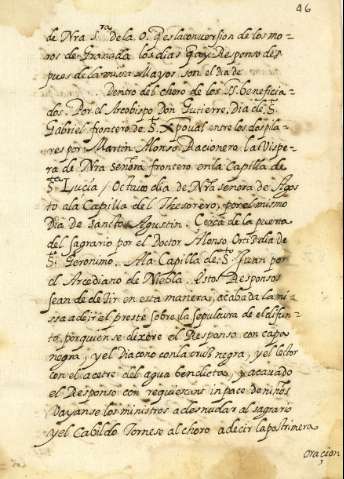 46
de Nra S.ra de la O. q es la conversion de los mo=
ros de Granada los dias q ay Responso des
pues de la missa Mayor son el dia de
dentro del choro de los SS. beneficia=
dos. Por el Arcobispo Don Gutierre, Dia de S.
Gabriel frontero de S. Xpoual entre los dos pila=
res por Martin Alonso Racionero la Vispe=
ra de Nra Senora frontero en la Capilla de
S.ta Lucia / Octauo dia de Nra senora de Agos
to a la Capilla del Thesorero, por el mismo
Dia de sancto Agustin. Cerca de la puerta
del sagrario por el Doctor Alonso Ortiz dia de
S. Geronimo. A la Capilla de S. Juan por
el Arcediano de Niebla. Estos Responsos
sean de dezir en esta manera, acabada la mi=
ssa a dezir el preste sobre la sepultura de el difun=
to, por quien se dixere el Responso con capa
negra, y el Diacono con la cruz negra, y el lector
con el acetre del agua bendicta, y acauado
el Responso con requiescant in pace de niños
Vayanse los ministros a desnudar al sagrario
y el Cabildo Tornese al choro a decir la postrimera
oracion